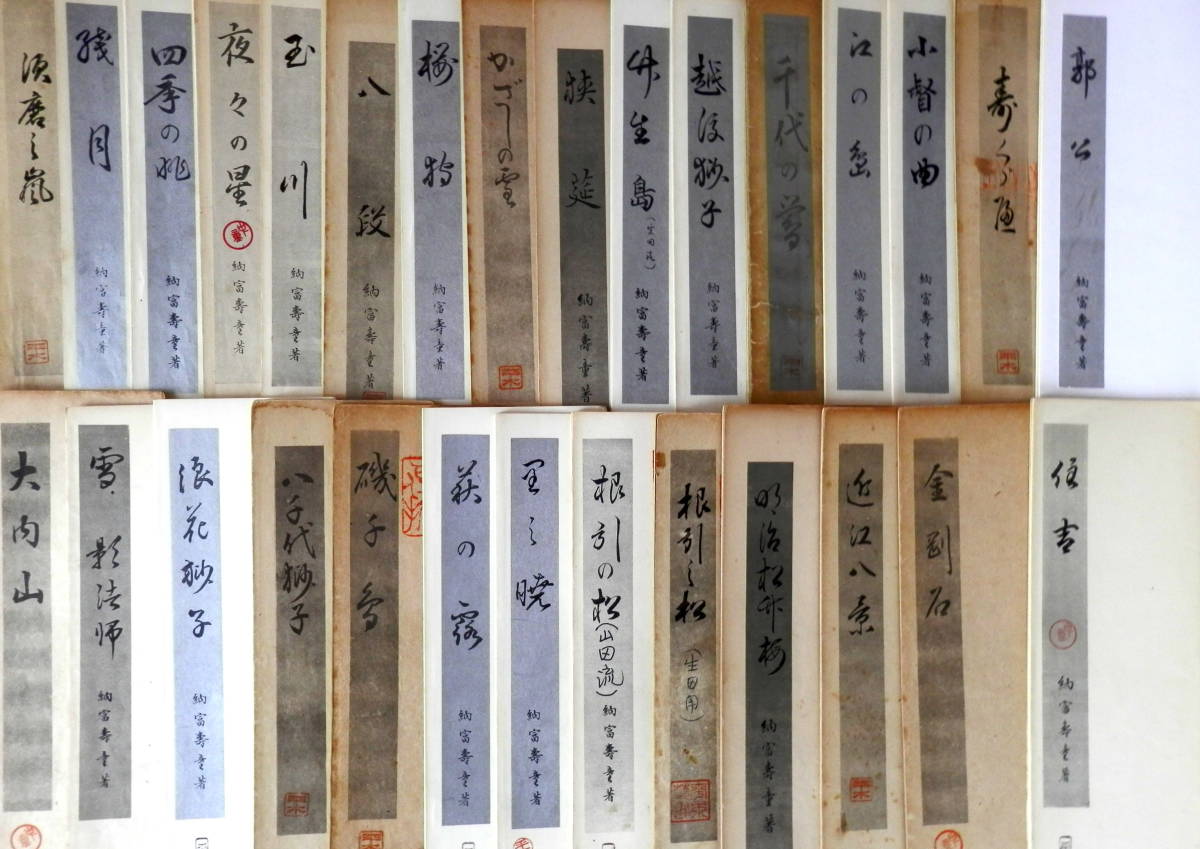 須磨之嵐
残月
納富寿童著
四季の眺
納富寿童著
夜々の星
納富壽童著
玉川
納富壽童著
八段
納富壽童著
桜狩
納富寿童著
かざしの雪
狭莚
納富壽童著
竹生島
(生田流)
納富壽童著
越後獅子
納富壽童著
千代の鶯
江の島
納富壽童著
小督の曲
納富壽童著
寿くらべ
郭公
納富壽童著
大内山
雪、影法師
納富壽童著
浪花獅子
納富壽童著
八千代獅子
磯千鳥
萩の露
納富壽童著
里之暁
納富壽童著
根引の松(山田流)
納富壽童著
根引之松
(生田用)
明治松竹梅
納富寿童著
近江八景
金剛石
住吉
納富寿童著